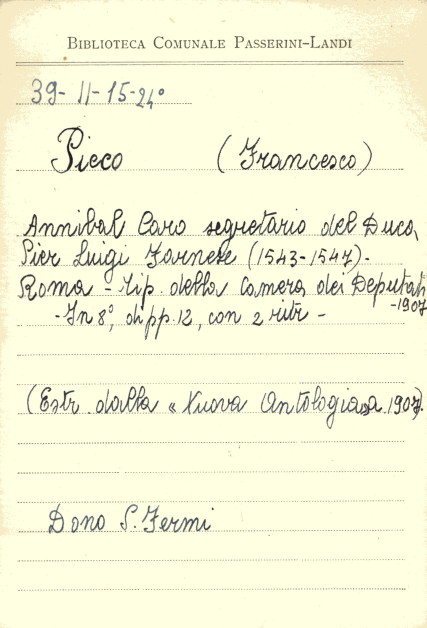 BIBLIOTECA COMUNALE PASSERINI-LANDI
39-II-15-24°
Picco (Francesco)
Annibal Caro segretario del Duca
Pier Luigi Farnese (1543-1547)-
Roma - tip. della Camera dei Deputati
-1907
-In 8°, di pp. 12, con 2 ritr -
(Estr. dalla « Nuova Antologia» a. 1907).
Dono S. Fermi